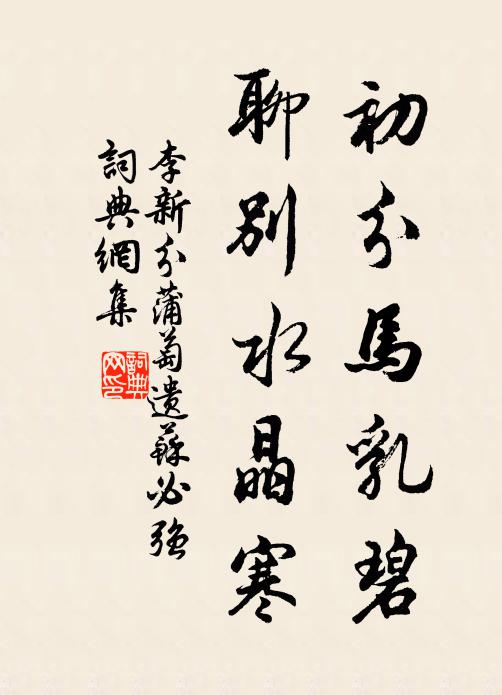 初分馬乳碧
聊別水晶寒
李新分蒲萄遺蘇必強
詞典網集
詞典网印